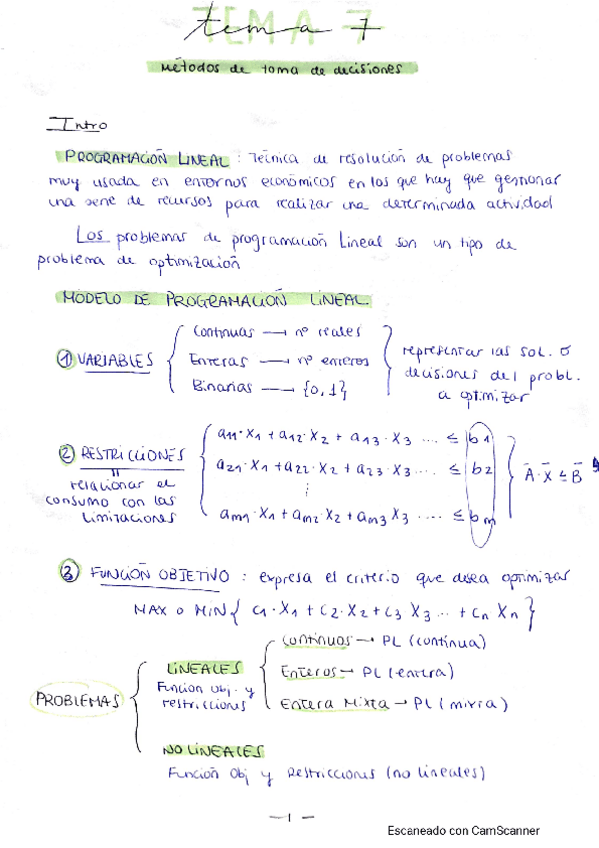 TEMA 7
tema 7
Métodos de toma de decisiones
Intro
PROGRAMACIÓN LINEAL : Técnica de resolución de problemas
muy usada en entornos económicos en los que hay que gestionar
una serie de recursos para realizar una determinada actividad
Los problemas de programación Lineal son un tipo de
problema de optimización
MODELO DE PROGRAMACIÓN LINEAL
① VARIABLES
Continuas → nº reales
Enteras → nº enteros
Binarias → {0,1}
representar las sol. o
decisiones del probl.
a optimizar
② RESTRICCIONES
"
relacionar el
consumo con las
limitaciones
a11·X1 + a12·X2 + a13·X3 .... ≤ b1
a21·X1 + a22·X2 + a23·X3 .... ≤ b2
⋮
am1·X1 + am2·X2 + am3·X3 .... ≤ bm
A̅·X̅ ≤ B̅
③ FUNCIÓN OBJETIVO : expresa el criterio que desea optimizar
MAX o MIN { C1·X1 + C2·X2 + C3 X3 ... + Cn Xn }
PROBLEMAS
LINEALES
Función obj. y
restricciones
Continuos → PL (continua)
Enteros → PL (entera)
Entera Mixta → PL (mixta)
NO LINEALES
Función Obj y Restricciones (no lineales)
-1-
Escaneado con CamScanner